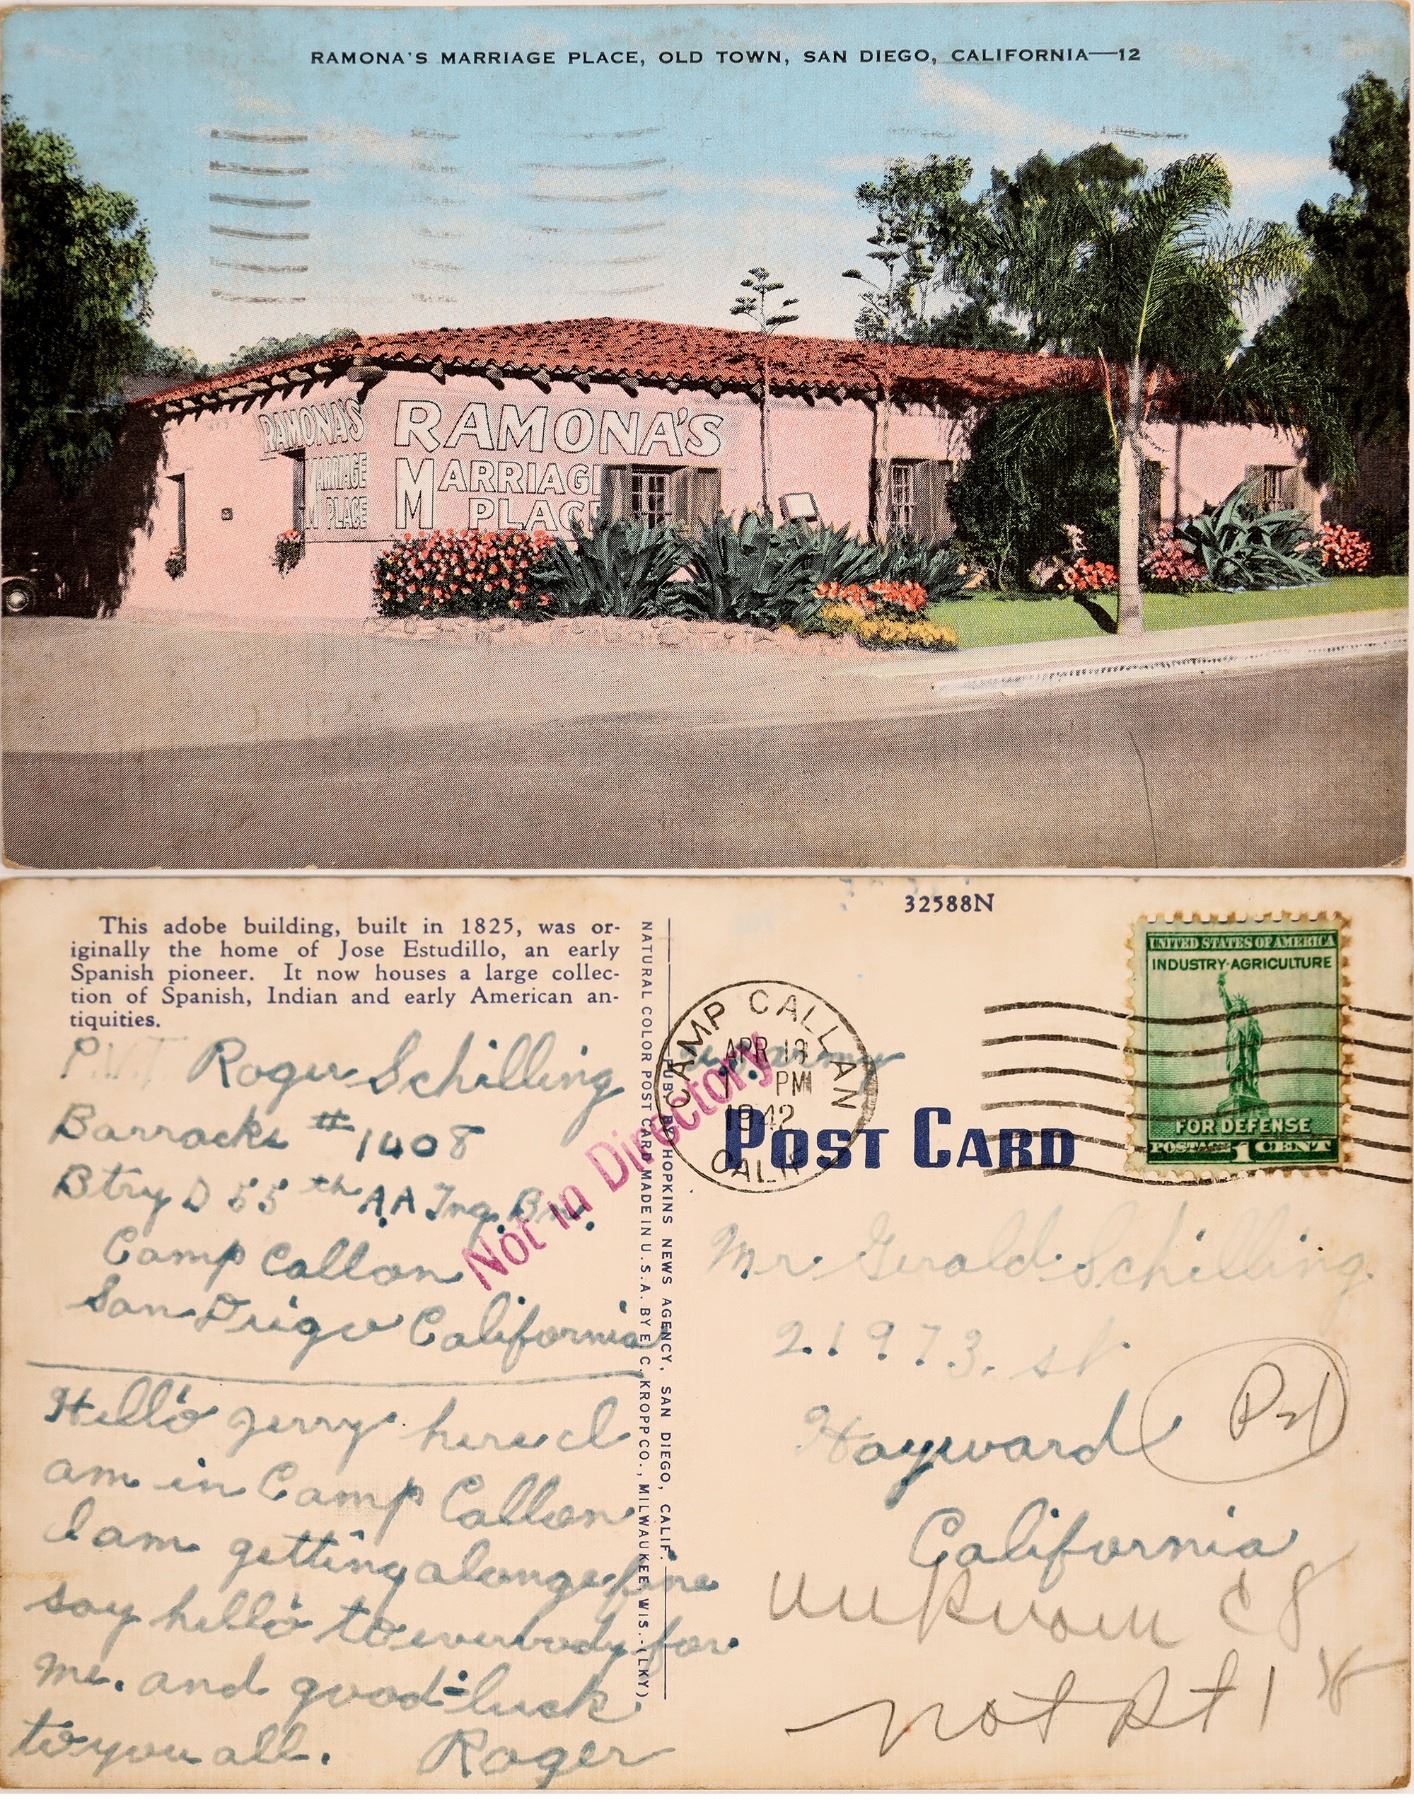 RAMONA'S MARRIAGE PLACE, OLD TOWN, SAN DIEGO, CALIFORNIA—12
RAMONA'S
MARRIAGE
PLACE
RAMONA'S
MARRIAGE
PLACE
This adobe building, built in 1825, was or-
iginally the home of Jose Estudillo, an early
Spanish pioneer. It now houses a large collec-
tion of Spanish, Indian and early American an-
tiquities.
PVT Roger Schilling
Barracks #1408
Btry D 55th A.A Tng. Bn.
Camp Callan
San Diego California
Hello Jerry here I
am in Camp Callan
I am getting alonge fine
say hello to everbody for
me. and good-luck
to you all. Roger
Not in Directory
NATURAL COLOR POST CARD MADE IN U.S.A. BY E. C. KROPP CO., MILWAUKEE, WIS.-(LKY)
PUB. BY HOPKINS NEWS AGENCY, SAN DIEGO, CALIF.
32588N
CAMP CALLAN
APR 18
PM
1942
CALIF.
UNITED STATES OF AMERICA
INDUSTRY·AGRICULTURE
FOR DEFENSE
POSTAGE 1 CENT
POST CARD
Mr. Gerald Schilling
21973. st
Hayward
California
unknown C8
not Rt 1